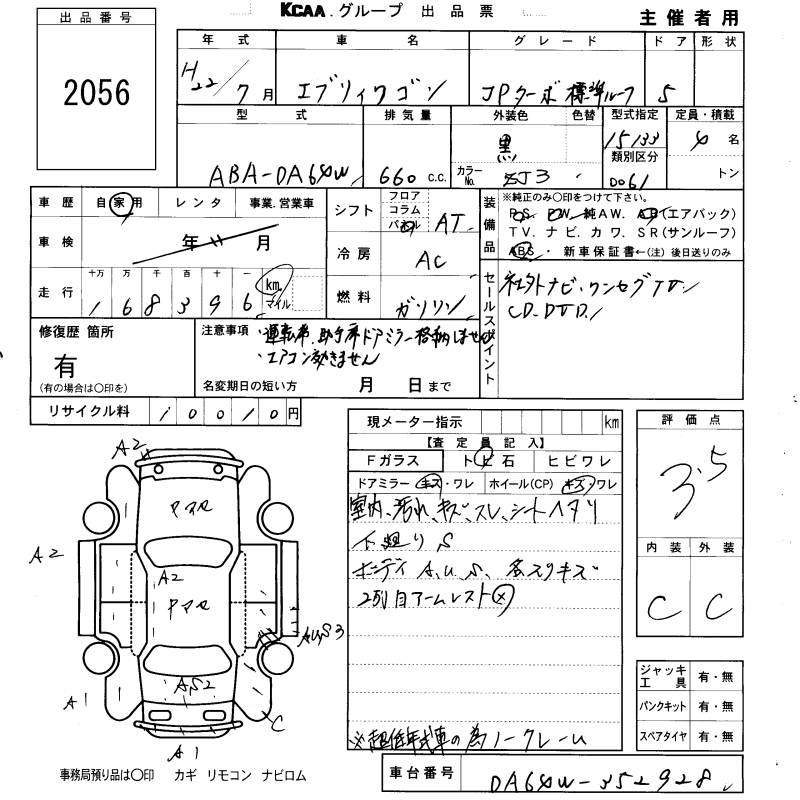 出品番号
2056
KCAA.グループ 出品票
主催者用
年式 車名 グレード ドア 形状
H22/7月 エブリィワゴン JPターボ 標準ルーフ 5
型式 排気量 外装色 色替 型式指定 定員・積載
ABA-DA64W 660 c.c. 黒 15133 4名
カラーNo. ZJ3 類別区分 0061 トン
車歴 自家用 レンタ 事業.営業車
車検 年 月
走行 十万 万 千 百 十 一
168396 km マイル
シフト フロア コラム パネル AT
冷房 AC
燃料 ガソリン
装備品
※純正のみ〇印をつけて下さい。
P.S. P.W. 純AW. AB(エアバック)
TV. ナビ. カワ. SR(サンルーフ)
ABS・新車保証書←(注)後日送りのみ
セールスポイント
社外ナビ・ワンセグTV
CD.DVD
修復歴 箇所
有
(有の場合は〇印を)
注意事項
・運転席、助手席ドアミラー格納しません
・エアコン効きません
名変期日の短い方 月 日まで
リサイクル料 10010円
現メーター指示 km
【査定員記入】
Fガラス トビ石 ヒビワレ
ドアミラー キズ・ワレ ホイール(CP) キズ・ワレ
室内、汚れ、キズ、スレ、シートヘタリ
下廻り S
ボディ A.U.S、多スリキズ
2列目アームレスト×
※超低年式車の為ノークレーム
評価点
3.5
内装 外装
C C
ジャッキ工具 有・無
パンクキット 有・無
スペアタイヤ 有・無
車台番号 DA64W-352928
A2
A2
A2
A1
A1
C
AUS3
A,S2
事務局預り品は〇印 カギ リモコン ナビロム